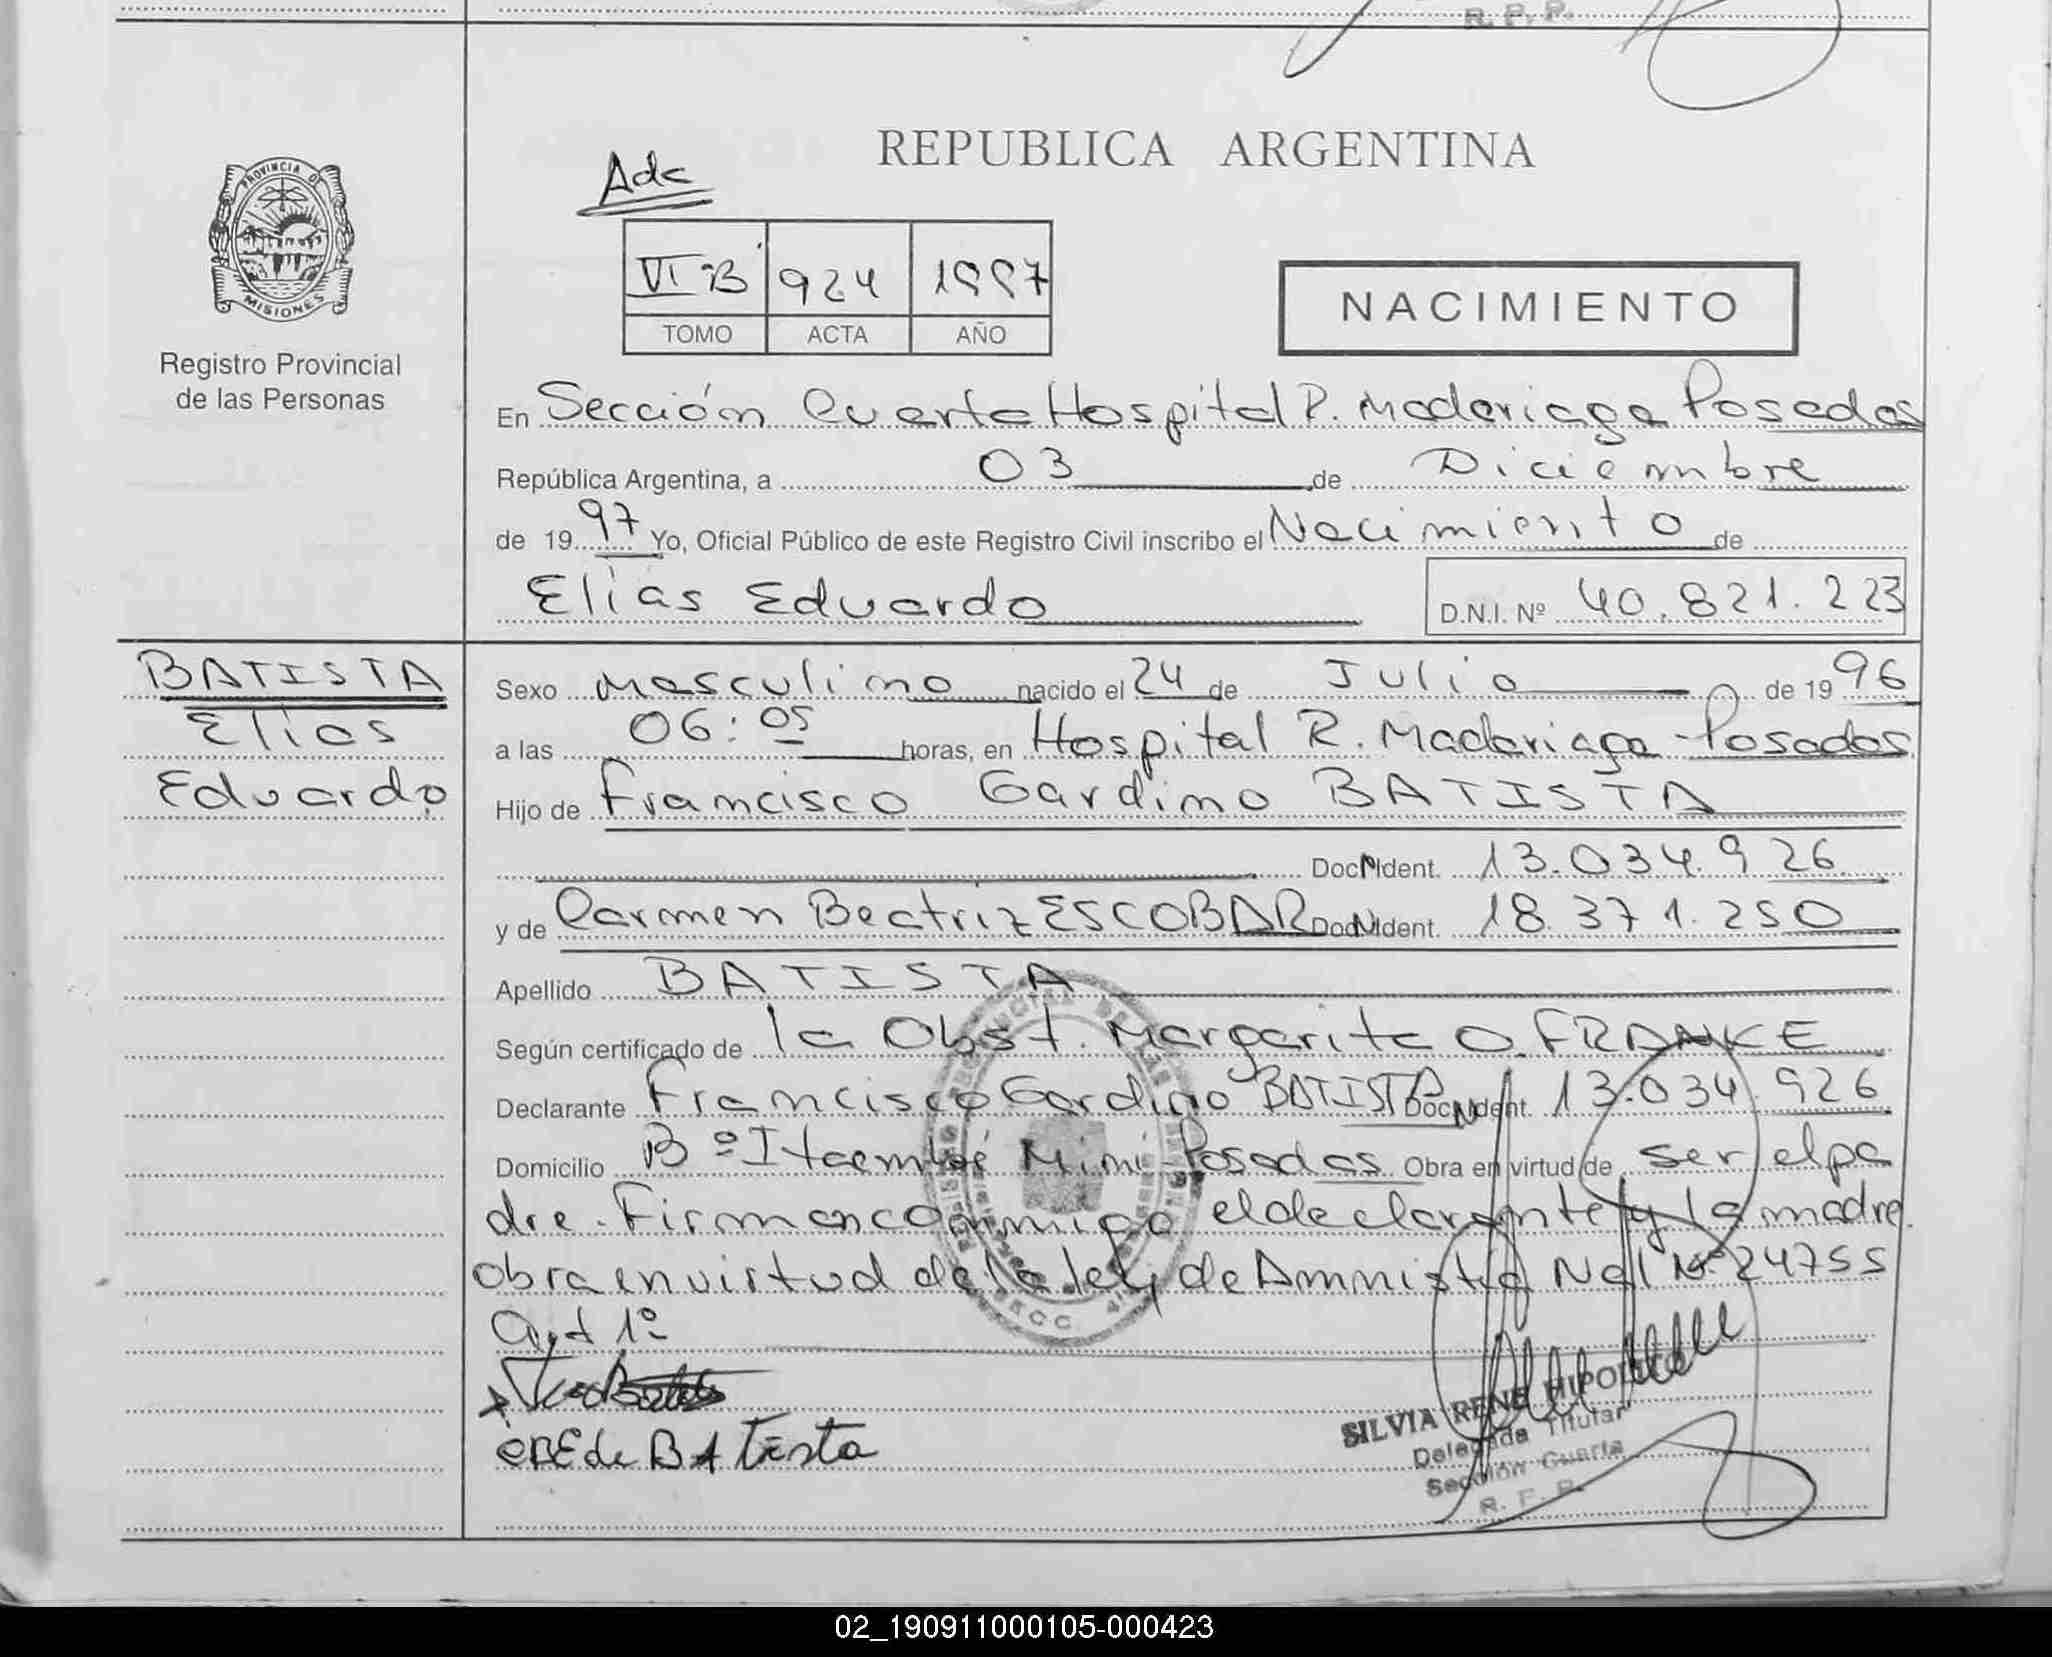 R. P. P.
REPUBLICA ARGENTINA
Adc
PROVINCIA DE
MISIONES
Registro Provincial
de las Personas
VI B 924 1997
TOMO ACTA AÑO
NACIMIENTO
En Sección Cuarta Hospital R. Madariaga Posadas
República Argentina, a 03 de Diciembre
de 1997 Yo, Oficial Público de este Registro Civil inscribo el Nacimiento de
Elías Eduardo D.N.I. Nº 40.821.223
BATISTA
Elías
Eduardo
Sexo Masculino nacido el 24 de Julio de 1996
a las 06:05 horas, en Hospital R. Madariaga - Posadas
Hijo de Francisco Gardino BATISTA
Doc. Ident. 13.034.926
y de Carmen Beatriz ESCOBAR Doc. Ident. 18.371.250
Apellido BATISTA
Según certificado de la Obst. Margarita O. FRANKE
Declarante Francisco Gardino BATISTA Doc. Ident. 13.034.926
Domicilio Bº Itaembé Miní Posadas Obra en virtud de ser el pa
dre. Firman conmigo el declarante y la madre.
obra en virtud de la ley de Amnistía Nal Nº 24755
art 1º
de BATista
SILVIA RENE HIPOLITO
Delegada Titular
Sección Cuarta
R. P. P.
02_190911000105-000423